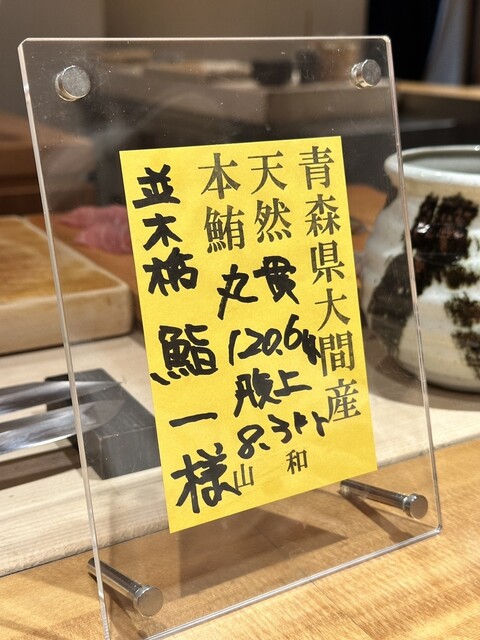 青森県大間産
天然
本鮪
貫
丸
120.6kg
腹上
8.3kg
山和
並木橋
鮨一様